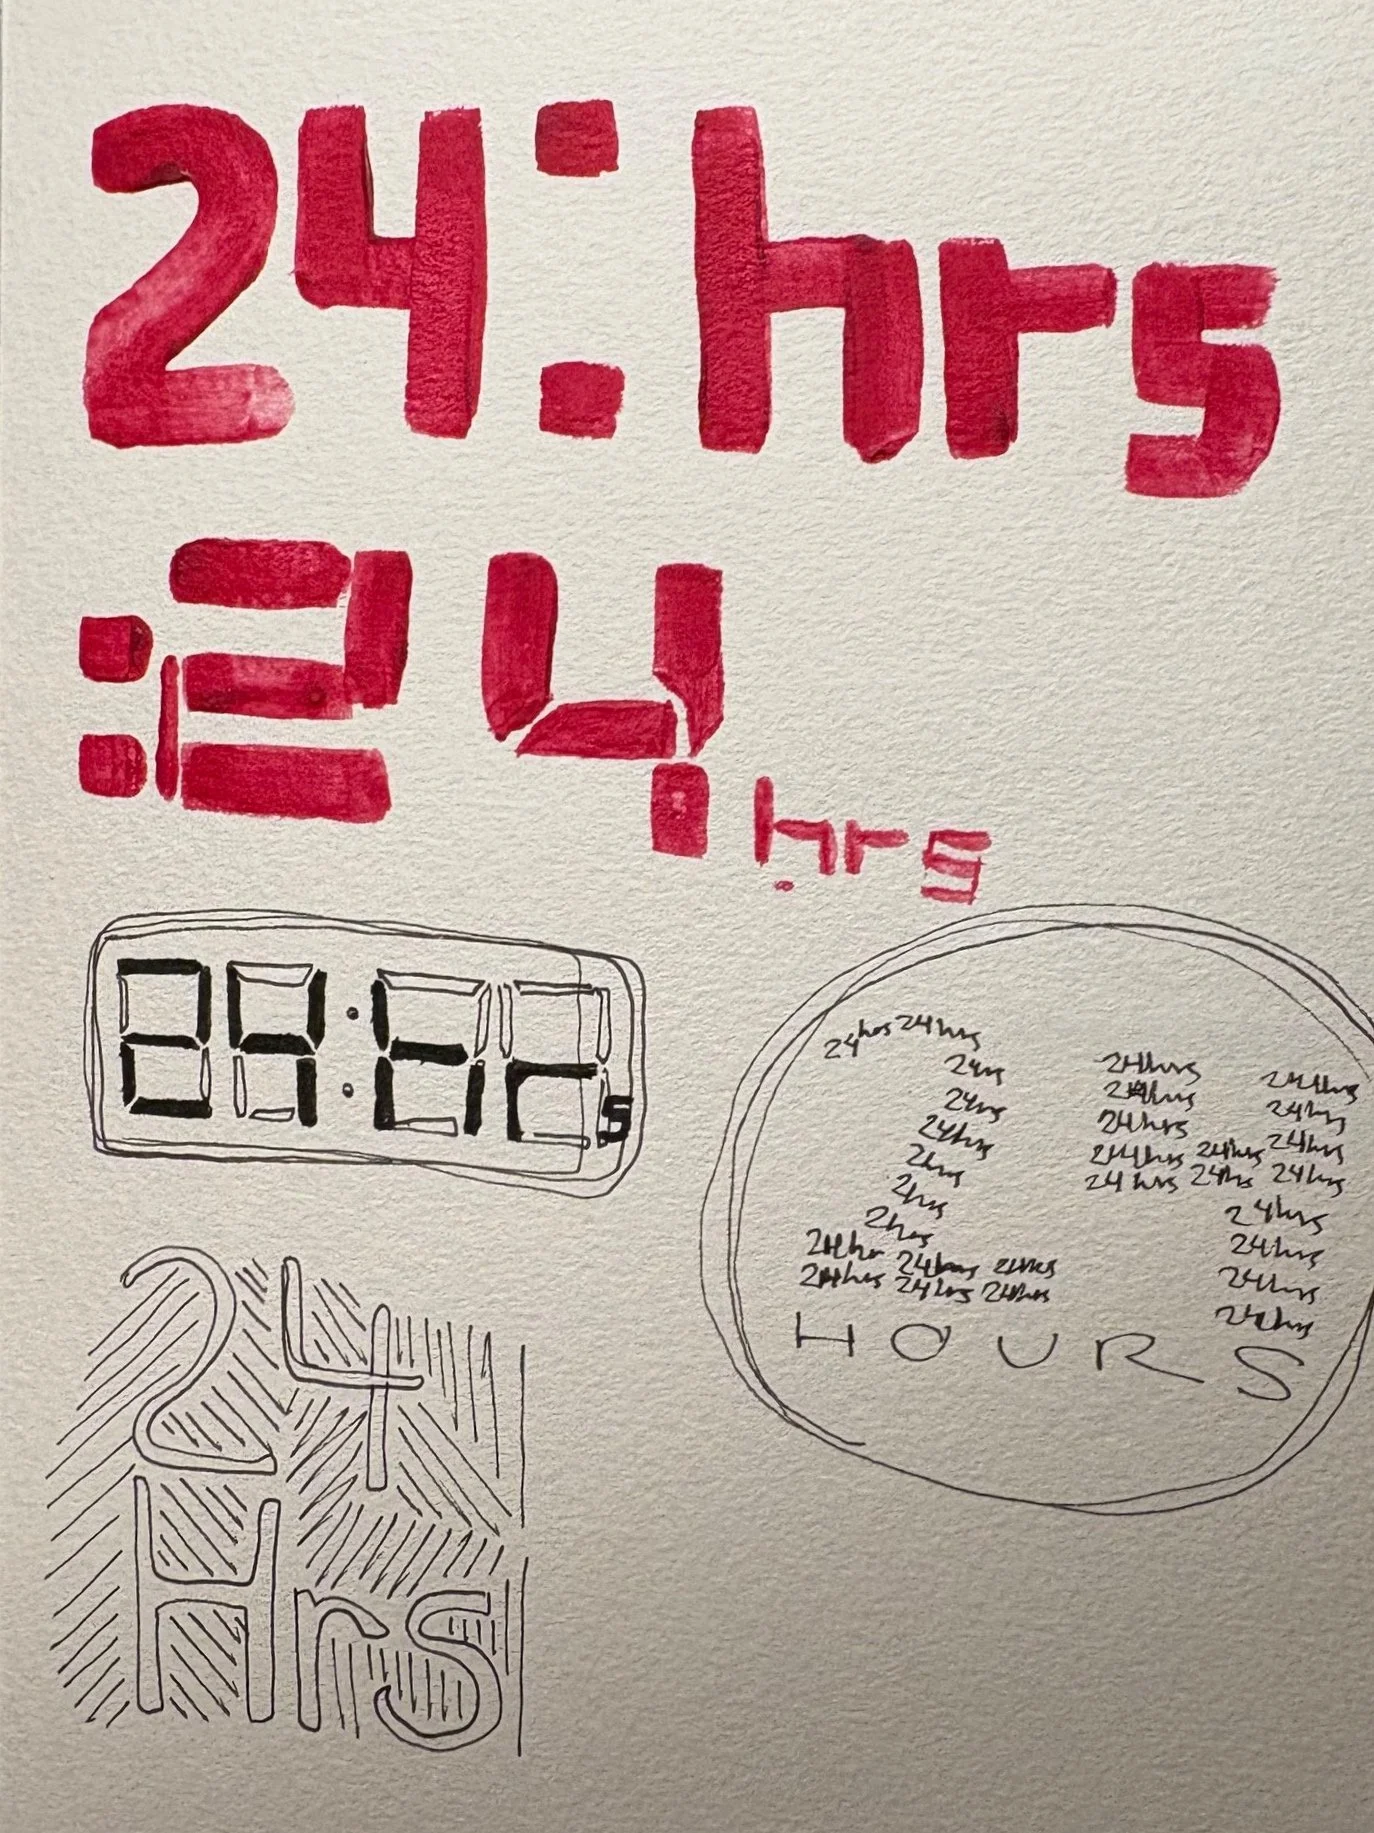 24:hrs
:24 hrs
24:hrs
24hrs 24hrs
24rs 24hrs 24hrs
24rs 24hrs 24hrs
24hrs 24hrs 24hrs
2hrs 24hrs 24hrs 24hrs
2hrs 24hrs 24hrs
2hrs 24hrs
24hr 24hrs 24hrs 24hrs
24hrs 24hrs 24hrs 24hrs
24hrs
HOURS
24
Hrs